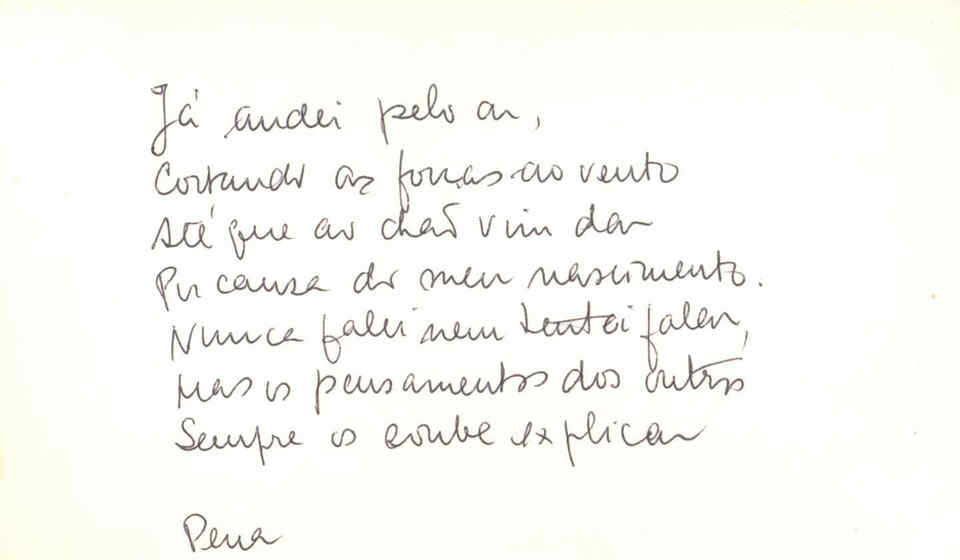 Já andei pelo ar,
Cortando as forças ao vento
Até que ao chão vim dar
Por causa do meu nascimento.
Nunca falei nem tentei falar,
Mas os pensamentos dos outros
Sempre os soube explicar
Pena